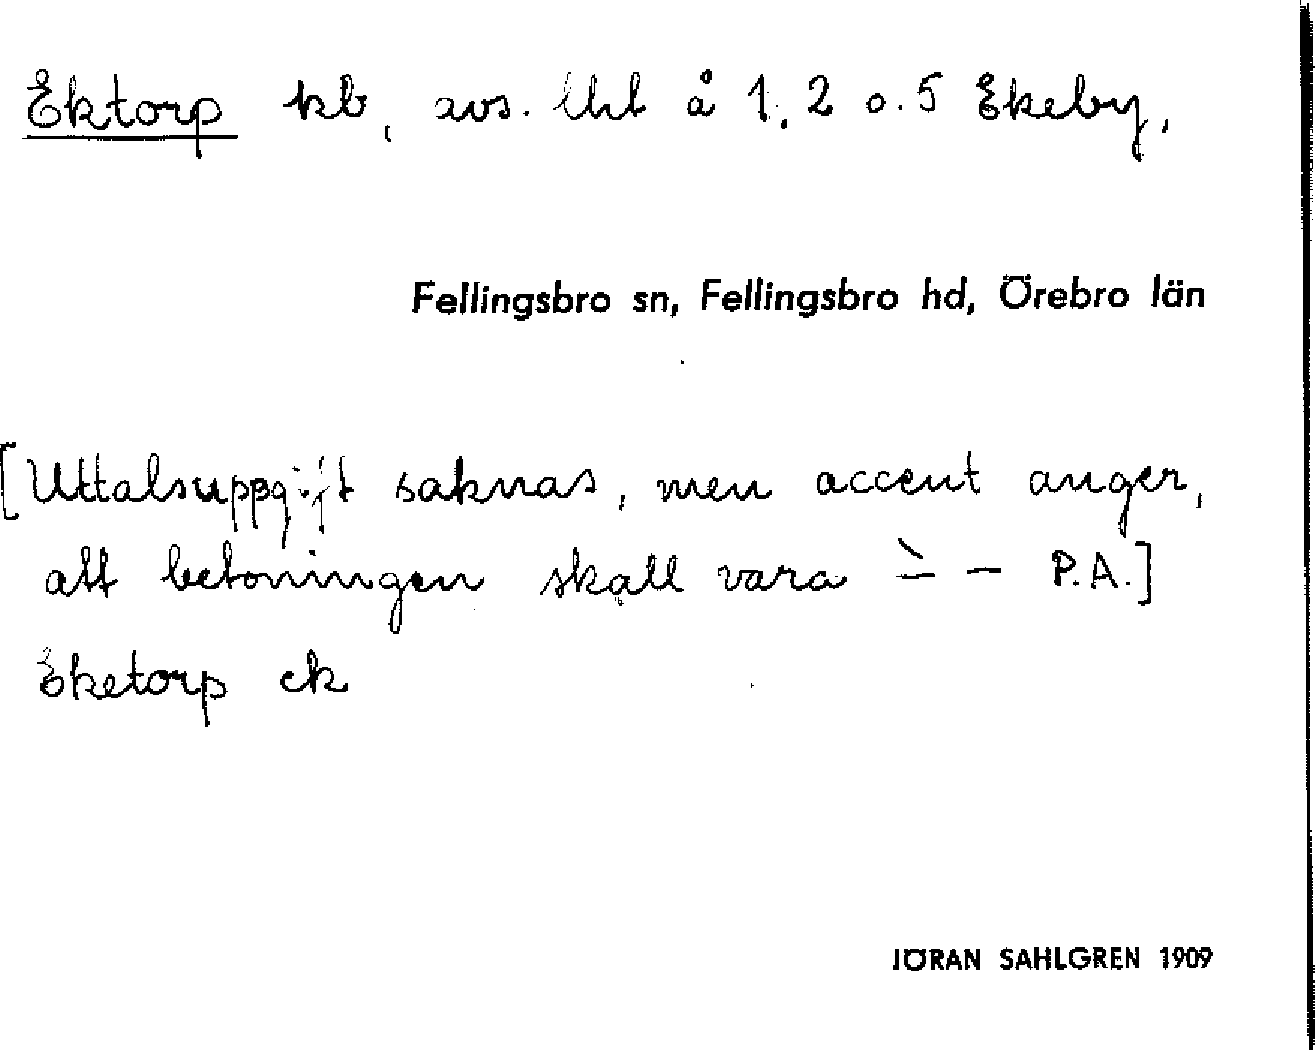 Ektorp kb, avs. lht å 1, 2 o. 5 Ekeby,
Fellingsbro sn, Fellingsbro hd, Örebro län
[Uttalsuppgift saknas, men accent anger,
att betoningen skall vara –̀ – P.A.]
Eketorp ek
JÖRAN SAHLGREN 1909